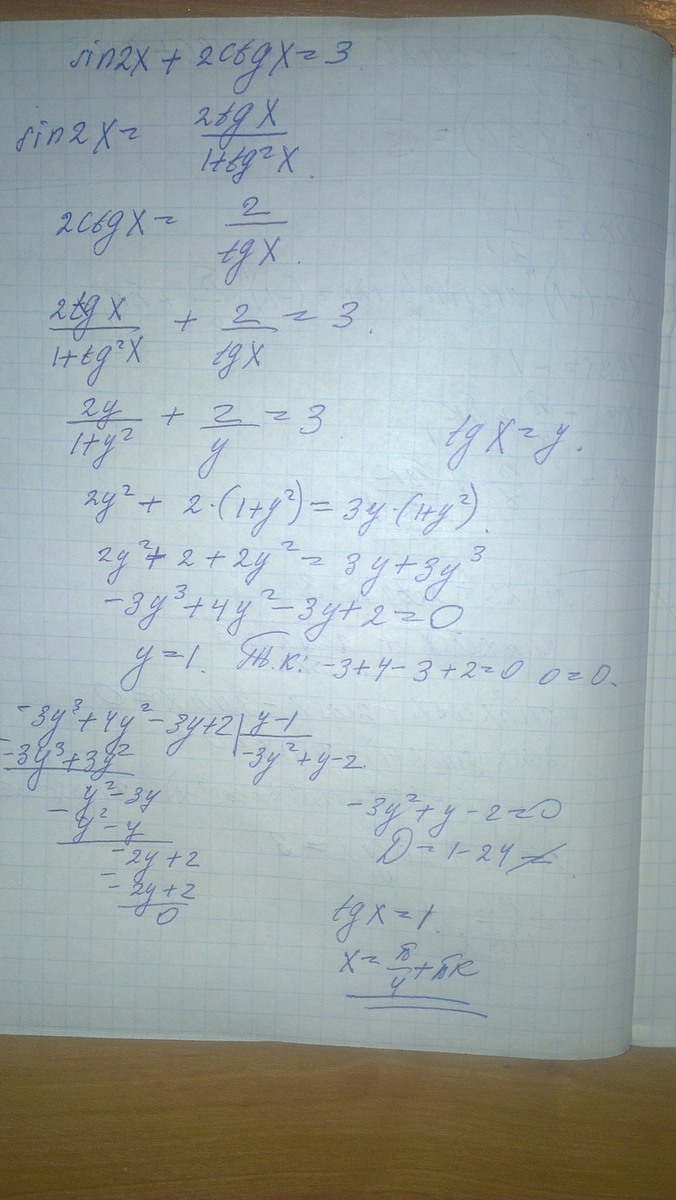 sin2x + 2ctgx = 3
sin2x = 2tgx / (1+tg²x).
2ctgx = 2 / tgx.
2tgx / (1+tg²x) + 2 / tgx = 3.
2y / (1+y²) + 2 / y = 3 tgx = y.
2y² + 2·(1+y²) = 3y·(1+y²).
2y² + 2 + 2y² = 3y + 3y³
-3y³ + 4y² - 3y + 2 = 0
y = 1. Т.к: -3+4-3+2=0 0=0.
-3y³ + 4y² - 3y + 2 | y-1
-3y³ + 3y² -3y² + y - 2
y² - 3y
- y² - y
-2y + 2
- -2y + 2
0
-3y² + y - 2 = 0
D = 1 - 24
tgx = 1
x = π/4 + πk